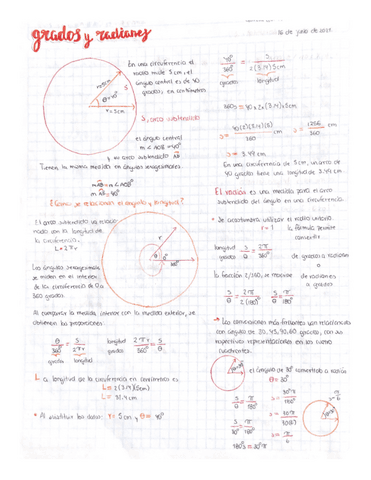 grados y radianes
16 de julio de 2021
En una circunferencia el
radio mide 5 cm, el
ángulo central es de 40
grados, en centímetros
r=5cm
S
θ=40°
r=5cm
S, arco subtendido
el ángulo central
m∠AOB=40°
y su arco subtendido AB
Tienen la misma medida en ángulos sexagesimales
mAB = m∠AOB
mAB = 40°
¿Cómo se relacionan el ángulo y longitud?
El arco subtendido va relacio-
nado con la longitud de
la circunferencia.
L=2πr
Los ángulos sexagesimales
se miden en el interior
de las circunferencia de 0 a
360 grados.
r
360°
Al comparar la medida interior con la medida exterior, se
obtienen las proporciones:
θ/360° = S/2πr
longitud/grados
2πr/360° = S/θ
grados longitud
La longitud de la circunferencia en centímetros es
L=2(3.14)(5cm)
L= 31.4 cm
• Al sustituir los datos: r=5cm y θ=40°
40°/360° = S/2(3.14)5cm
grados longitud
360S = 40x2x(3.14)5cm
S = 40(2)(3.14)(5)/360 cm = 1256/360 cm
S = 3.49 cm
En una circunferencia de 5cm, un arco de
40 grados tiene una longitud de 3.49 cm.
El radián es una medida para el arco
subtendido del ángulo en una circunferencia.
• Se acostumbra utilizar el radio unitario
r=1 la fórmula permite
convertir
longitud/grados S/θ = 2π/360° de grados a
radianes
la fracción 2/360, se mueve de radianes
a grados
S/θ = 2π/2(180°) S/θ = π/180°
• Las conversiones más frecuentes son relacionadas
con ángulos de 30, 45, 90, 60 grados, con sus
respectivas representaciones en los cuatro
cuadrantes.
el ángulo de 30° convertido a radián
θ=30°
S/θ = π/180°
S/30° = π/180°
180°S=30°π
S = 30°π/180°
S = 30π/30(6)
S = π/6
π/6